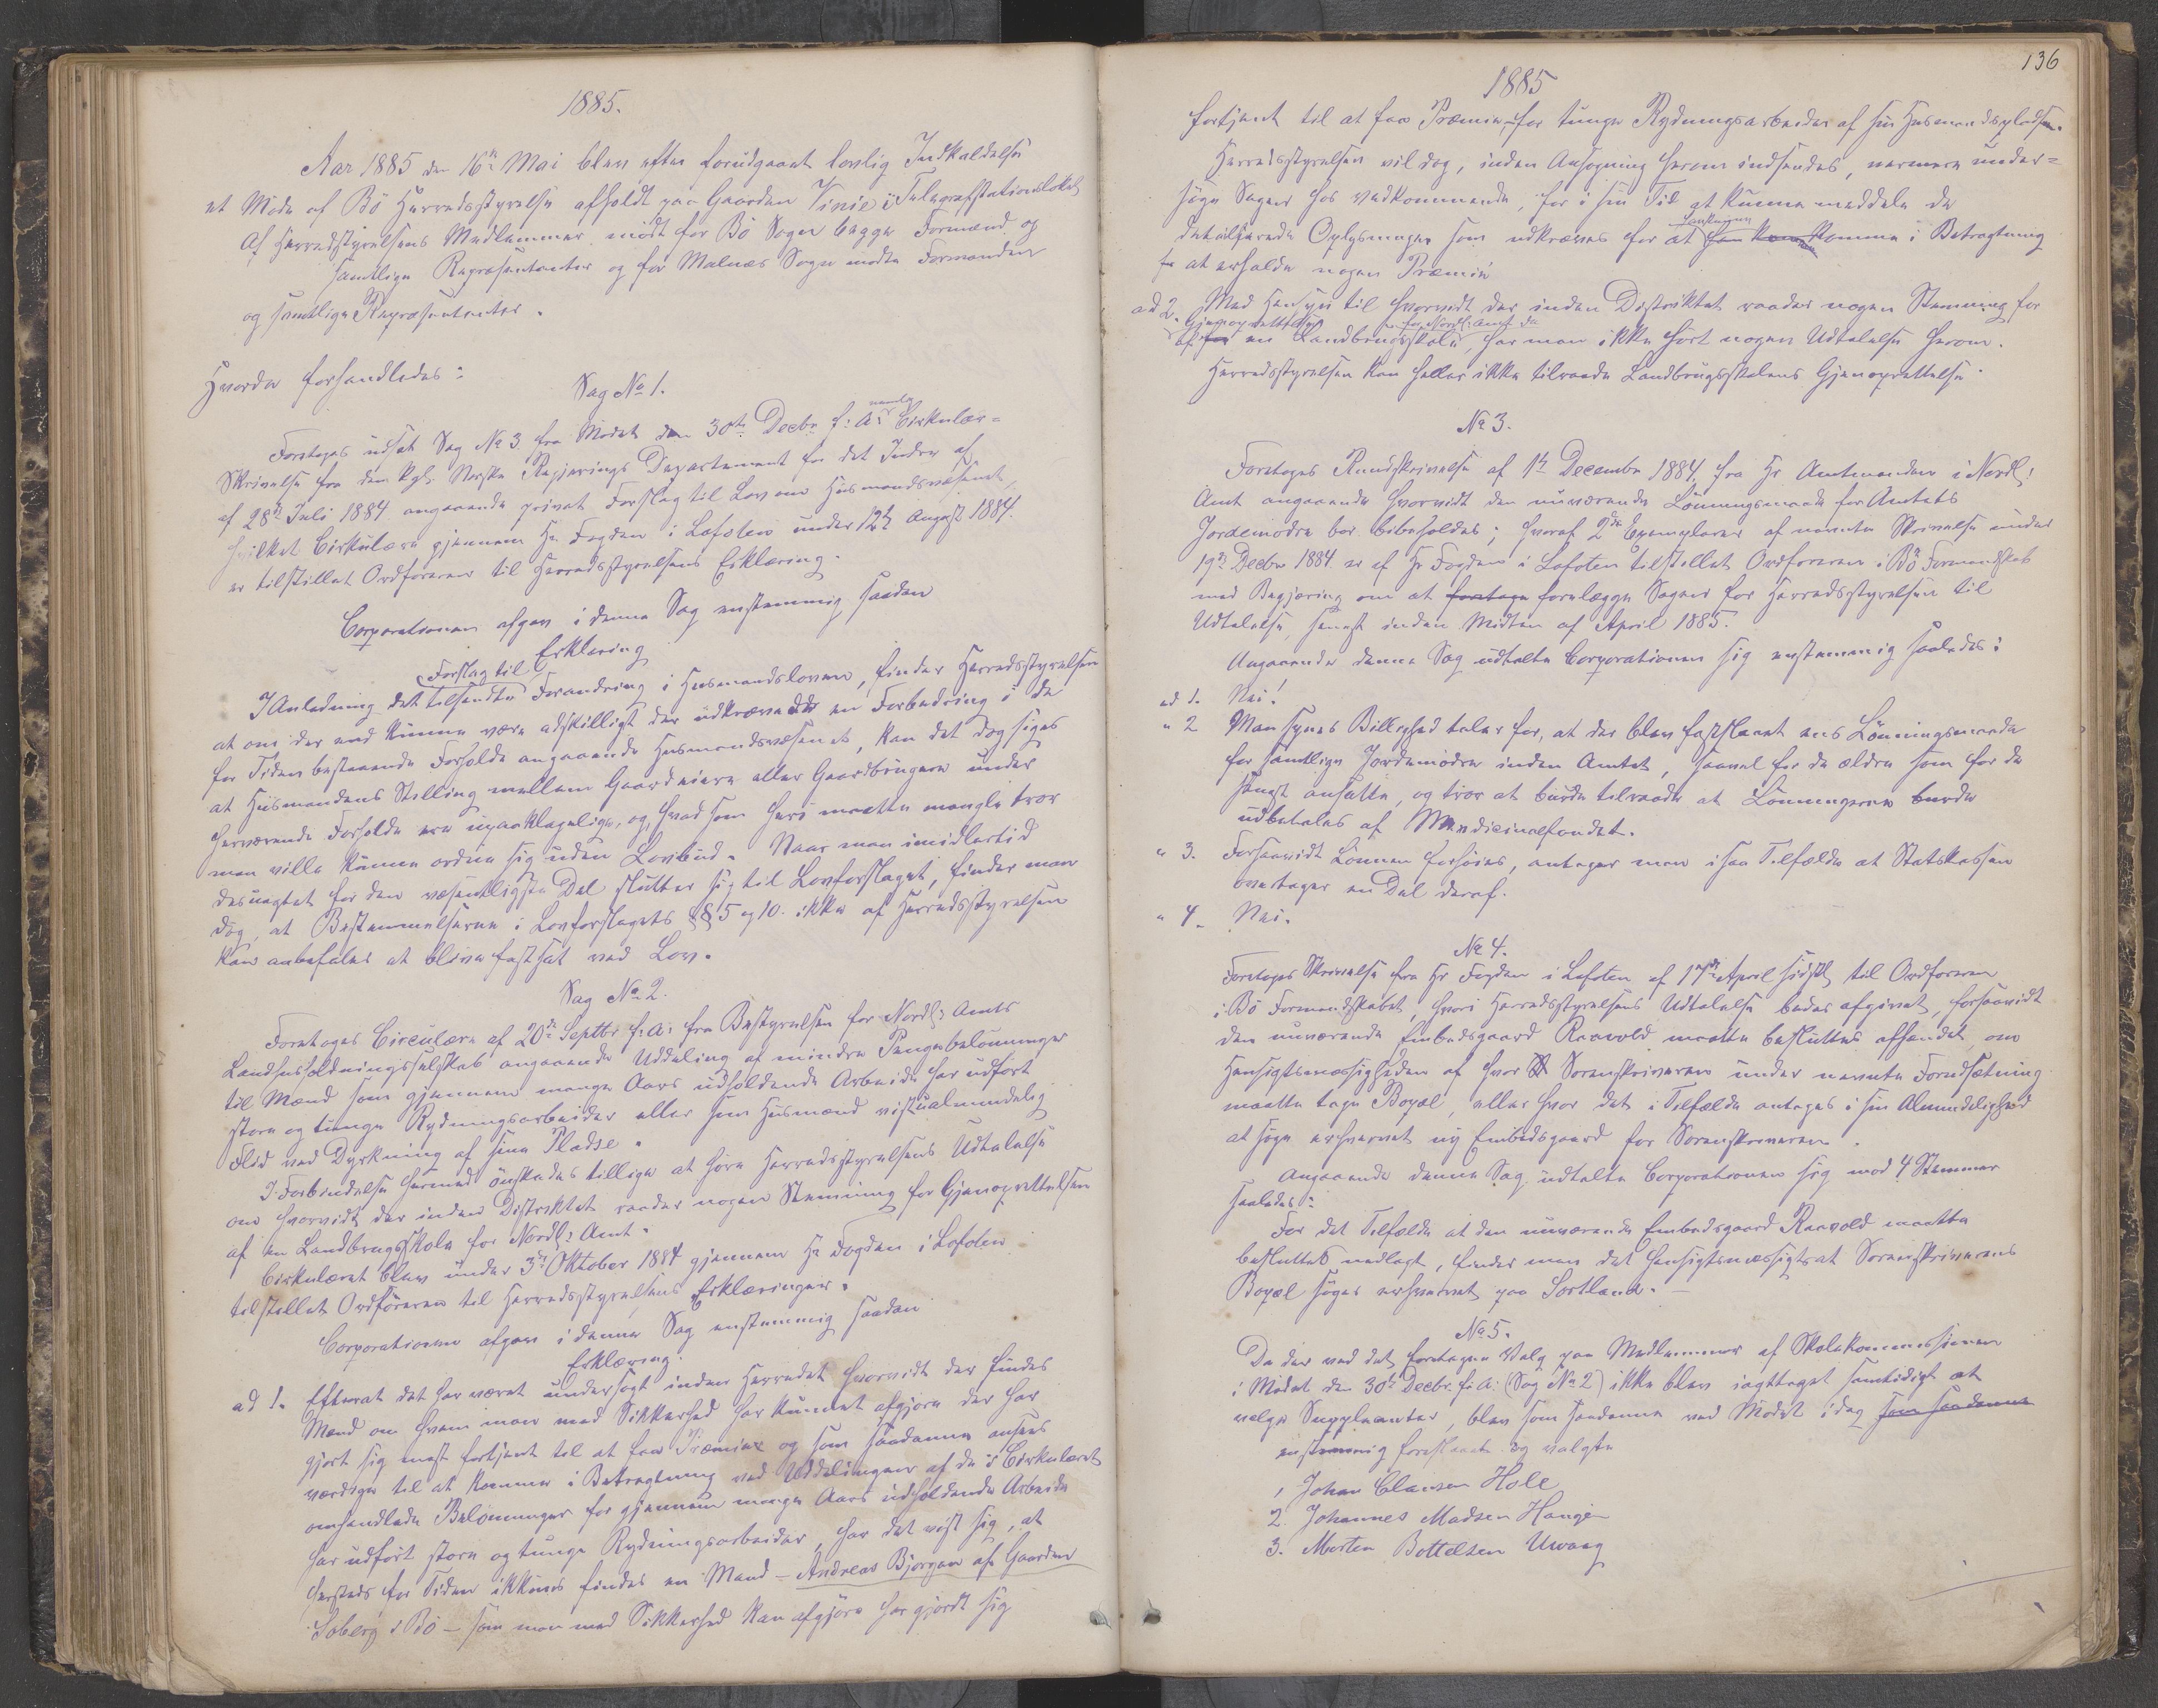 1885.
Aar 1885 den 16de Mai blev efter forudgaaet lovlig Indkaldelse
et Møde af Bö Herredsstyrelse afholdt paa Gaarden Vinie i Telegrafstationslokalet
Af Herredstyrelsens Medlemmer mødte for Bö Sogn begge Formænd og
samtlige Repræsentanter og for Malnæs Sogn mødte Formanden
og samtlige Repræsentanter.
Hvorda forhandledes:
Sag No 1.
Foretoges udsat Sag No 3 fra Mödet den 30te Decbr f: A: nemlig Cirkulær=
Skrivelse fra den kgl. Norske Regjerings Departement for det Indre af
af 28de Juli 1884 angaaende privat Forslag til Lov om Husmandsvæsenet,
hvilket Cirkulære gjennem Hr Fogden i Lofoten under 12te August 1884.
er tilstillet Ordføreren til Herredsstyrelsens Erklæring.
Corporationen afgav i denne Sag enstemmig saadan
Erklæring
I Anledning det tilsendte Forslag til Forandring i Husmandsloven, finder Herredsstyrelsen
at om der end kunne være adskilligt der udkrævede en Forbedring i de
for Tiden bestaaende Forholde angaaende Husmandsvæsenet, kan det dog siges
at Husmandens Stilling mellem Gaardeiere eller Gaardbrugere under
herværende Forholde ere upaaklagelige, og hvad som heri maatte mangle tror
man ville kunne ordne sig uden Lovbud. Naar man imidlertid
desuagtet for den væsentligste Del slutter sig til Lovforslaget, finder man
dog, at Bestemmelserne i Lovforslagets §§ 5 og 10. ikke af Herredsstyrelsen
kan anbefales at blive fastsat ved Lov.
Sag No 2.
Foretoges Circulære af 20de Septbr f: A: fra Bestyrelsen for Nordl: Amts
Landhusholdningsselskab angaaende Uddeling af mindre Pengebelønninger
til Mænd som gjennem mange Aars udholdende Arbeide har udført
store og tunge Rydningsarbeider eller som Husmænd vist ualmindelig
Flid ved Dyrkning af sine Pladse.
I Forbindelse hermed önskedes tillige at høre Herredsstyrelsens Udtalelse
om hvorvidt der inden Distriktet raader nogen Stemning for Gjenoprettelsen
af en Landbrugsskole for Nordl: Amt.
Cirkulæret blev under 3de Oktober 1884 gjennem Hr Fogden i Lofoten
tilstillet Ordføreren til Herredsstyrelsens Erklæringer.
Corporationen afgav i denne Sag enstemmig saadan
Erklæring.
ad 1. Efterat det har været undersøgt inden Herredet hvorvidt der findes
Mænd om hvem man med Sikkerhed har kunnet afgjøre der har
gjort sig mest fortjent til at faa Præmier og som saadanne ansees
værdige til at komme i Betragtning ved Uddelingen af de i Cirkulæret
omhandlede Belønninger for gjennem mange Aars udholdende Arbeide
har udført store og tunge Rydningsarbeider, har det vist sig, at
hersteds for Tiden ikkuns findes en Mand - Andreas Bjorgan af Gaarden
Soberg i Bö - som man med Sikkerhed kan afgjöre har gjordt sig
136
1885
fortjent til at faa Præmie, for tunge Rydningsarbeider af sin Husmandsplads.
Herredsstyrelsen vil dog, inden Ansøgning herom indsendes, nærmere under=
søge Sagen hos vedkommende, for i sin Tid at kunne meddele de
detaillerede Oplysninger som udkræves for at komme i Betragtning
for at erholde nogen Præmie
ad 2. Med Hensyn til hvorvidt der inden Distriktet raader nogen Stemning for
Gjenoprettelse af en Landbrugsskole for Nordl: Amt da har man ikke hört nogen Udtalelse herom.
Herredsstyrelsen kan heller ikke tilraade Landbrugsskolens Gjenoprettelse.
No 3.
Foretoges Rundskrivelse af 1te December 1884, fra Hr Amtmanden i Nordl:
Amt angaaende hvorvidt den nuværende Lønningsmaade for Amtets
Jordemødre bør bibeholdes; hvoraf 2de Exemplarer af nævnte Skrivelse under
19de Decbr 1884 er af Hr Fogden i Lofoten tilstillet Ordføreren i Bö Formandskab
med Begjæring om at foretage forelægge Sagen for Herredsstyrelsen til
Udtalelse, senest inden Midten af April 1885.
Angaaende denne Sag udtalte Corporationen sig enstemmig saaledes:
ad 1. Nei!
" 2 Man synes Billighed taler for, at der blev fastslaaet ens Lønningsmaade
for samtlige Jordemødre inden Amtet, saavel for de ældre som for de
senest ansatte, og tror at burde tilraade at Lønningerne burde
udbetales af Medicinalfondet.
" 3. Forsaavidt Lønnen forhøies, antager man i saa Tilfælde at Statskassen
overtager en Del deraf.
" 4. Nei.
No 4.
Foretoges Skrivelse fra Hr Fogden i Lofoten af 17de April sidstl. til Ordføreren
i Bö Formandskabet, hvori Herredsstyrelsens Udtalelse bedes afgivet, forsaavidt
den nuværende Embedsgaard Raavold maatte besluttes afhændet, om
Hensigtsmæssigheden af hvor Sorenskriveren under nævnte Forudsætning
maatte tage Bopæl, eller hvor det i Tilfælde antages i sin Almindelighed
at søge erhvervet ny Embedsgaard for Sorenskriveren.
Angaaende denne Sag udtalte Corporationen sig mod 4 Stemmer
saaledes:
For det Tilfælde at den nuværende Embedsgaard Raavold maatte
besluttes nedlagt, finder man det hensigtsmæssigst at Sorenskriverens
Bopæl söges erhvervet paa Sortland.
No 5.
Da der ved det foretagne Valg paa Medlemmer af Skolekommissionen
i Mødet den 30te Decbr f: A: (Sag No 2) ikke blev iagttaget samtidigt at
vælge Supleanter, blev som saadanne ved Mødet idag som saadanne
enstemmig foreslaaet og valgte
1, Johan Clausen Hole
2. Johannes Madsen Haugen
3. Morten Bottelsen Uvaag